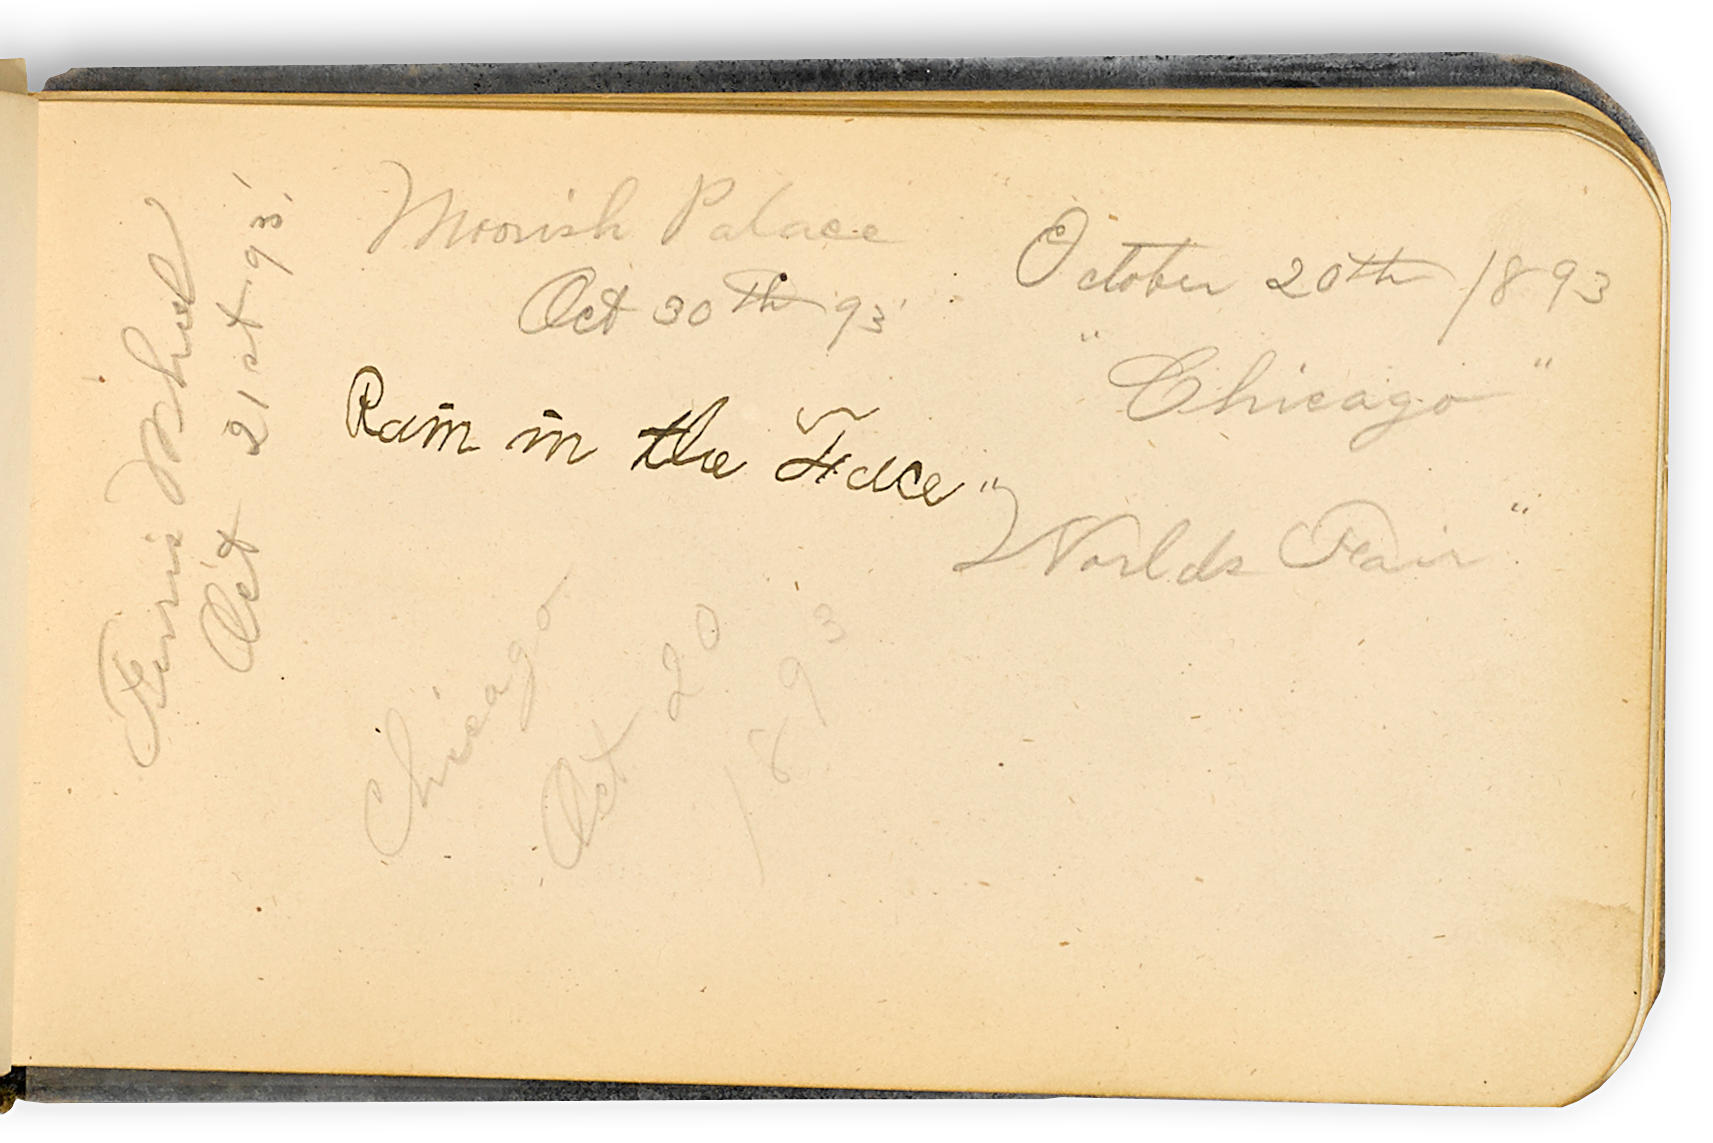 Ferris Wheel
Oct 21st 93'
Moorish Palace
Oct 30th 93'
Rain in the Face
October 20th 1893
"Chicago"
"Worlds Fair"
Chicago
Oct 20
1893